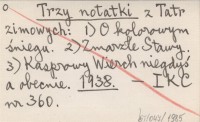 Trzy notatki z Tatr
zimowych: 1) O kolorowym
śniegu. 2) Zmarzłe Stawy.
3) Kasprowy Wierch niegdyś
a obecnie. 1938. — IKC
nr 360.